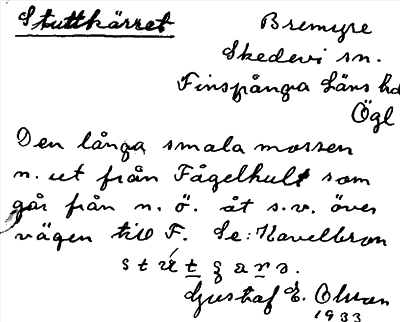 Stuttkärret
Bremyre
Skedevi sn.
Finspånga läns hd
Ögl
Den långa smala mossen
n. ut från Fågelhult som
går från n. ö. åt s.v. över
vägen till F. Se: Kavelbron
Gustaf E. Olsson
1933